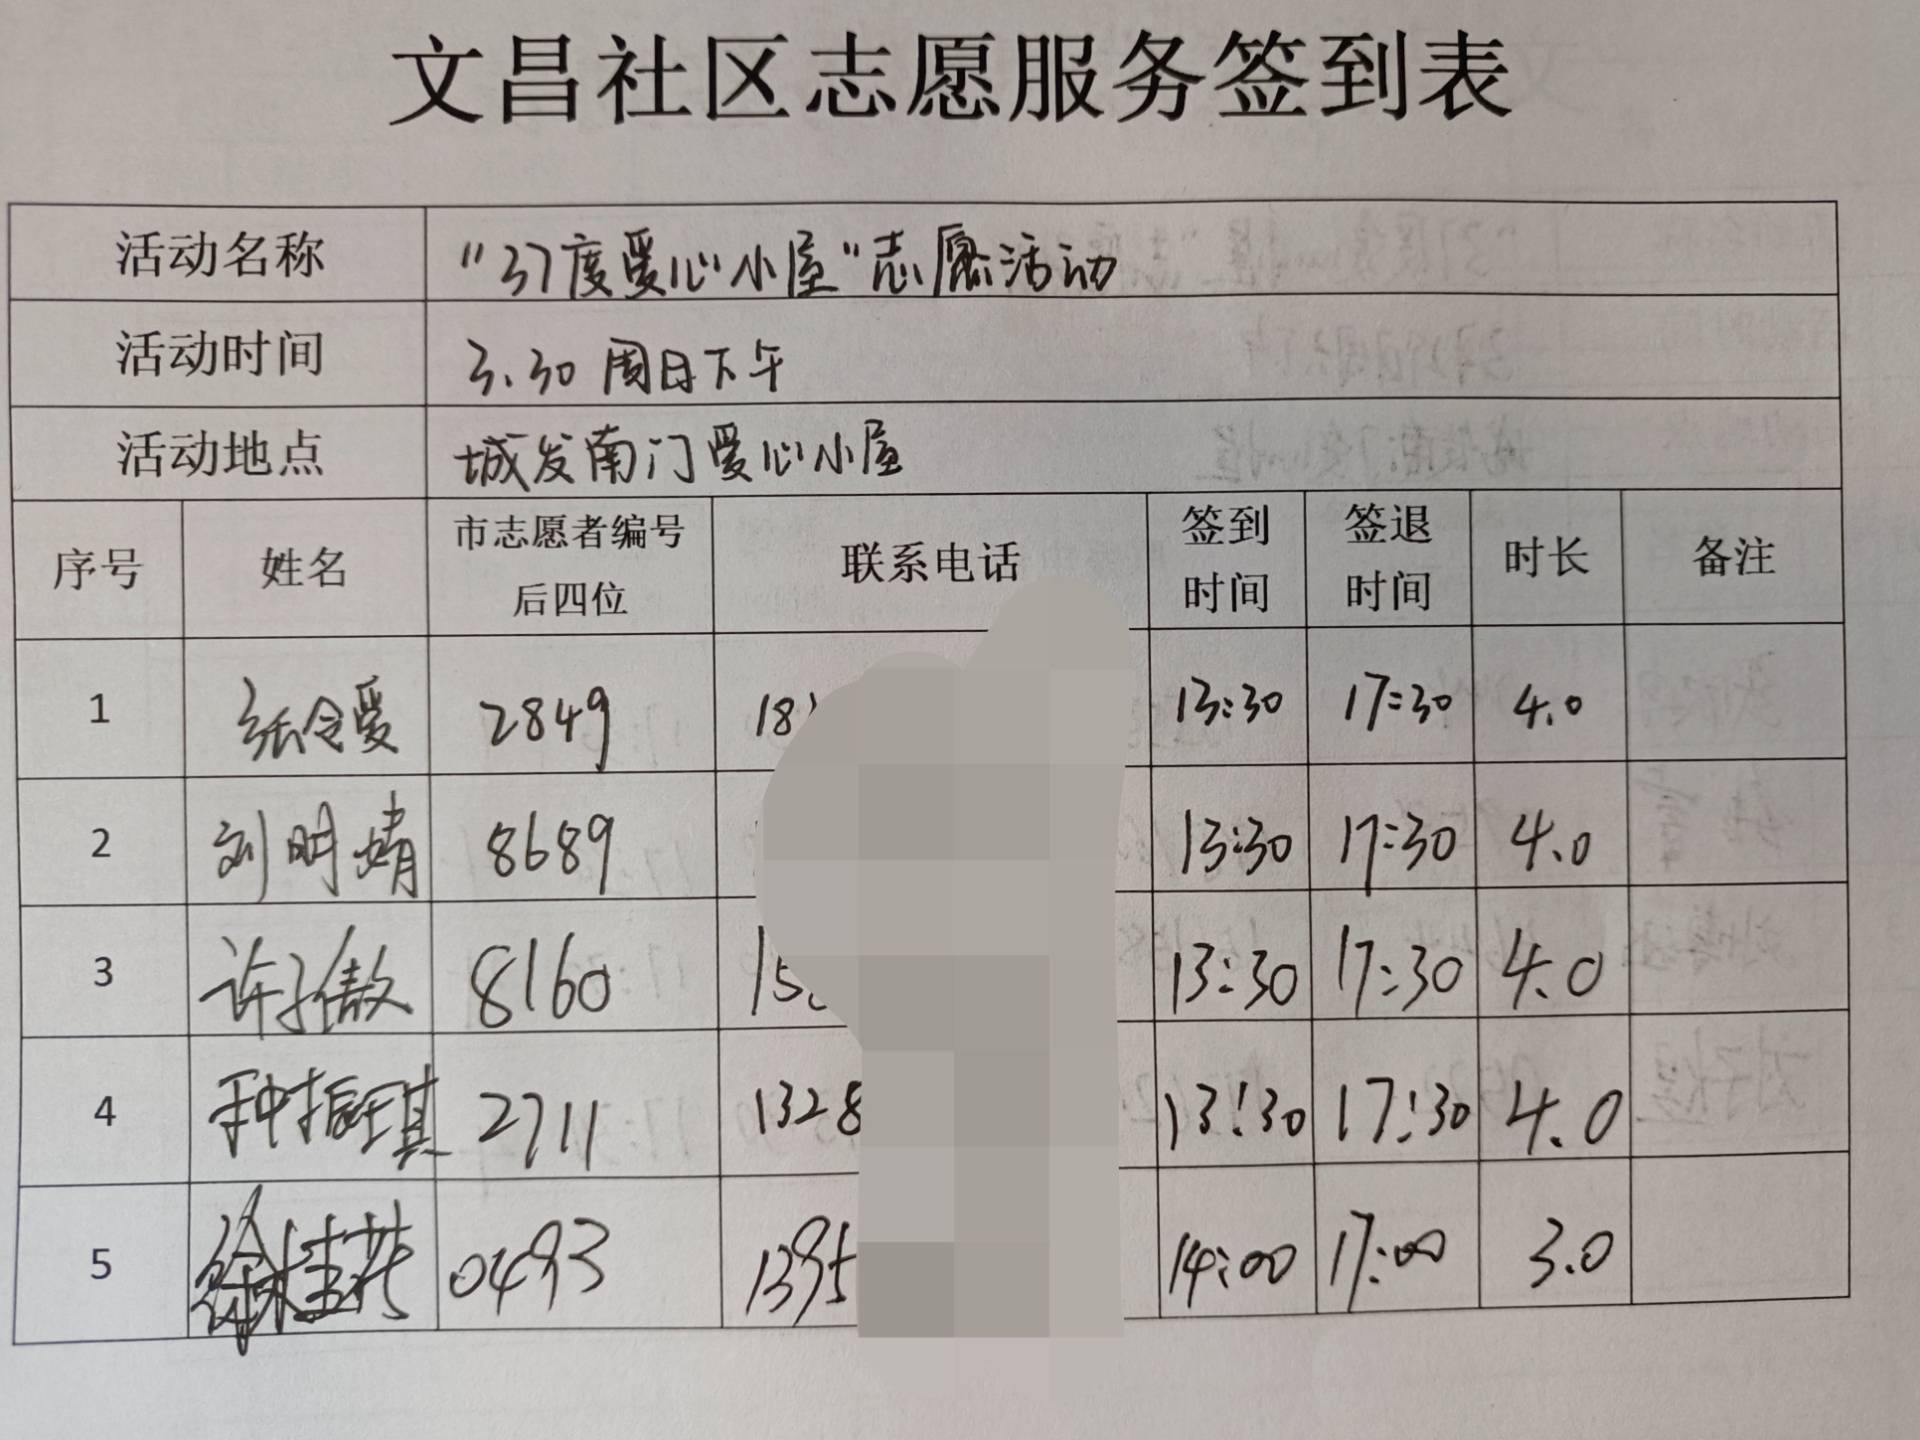 文昌社区志愿服务签到表
活动名称 "37度爱心小屋"志愿活动
活动时间 3.30 周日下午
活动地点 城发南门爱心小屋
序号 姓名 市志愿者编号后四位 联系电话 签到时间 签退时间 时长 备注
1 张令爱 2849 18 13:30 17:30 4.0
2 刘明婧 8689 13:30 17:30 4.0
3 许子傲 8160 15 13:30 17:30 4.0
4 种振琪 2711 1328 13:30 17:30 4.0
5 徐桂花 0493 1395 14:00 17:00 3.0